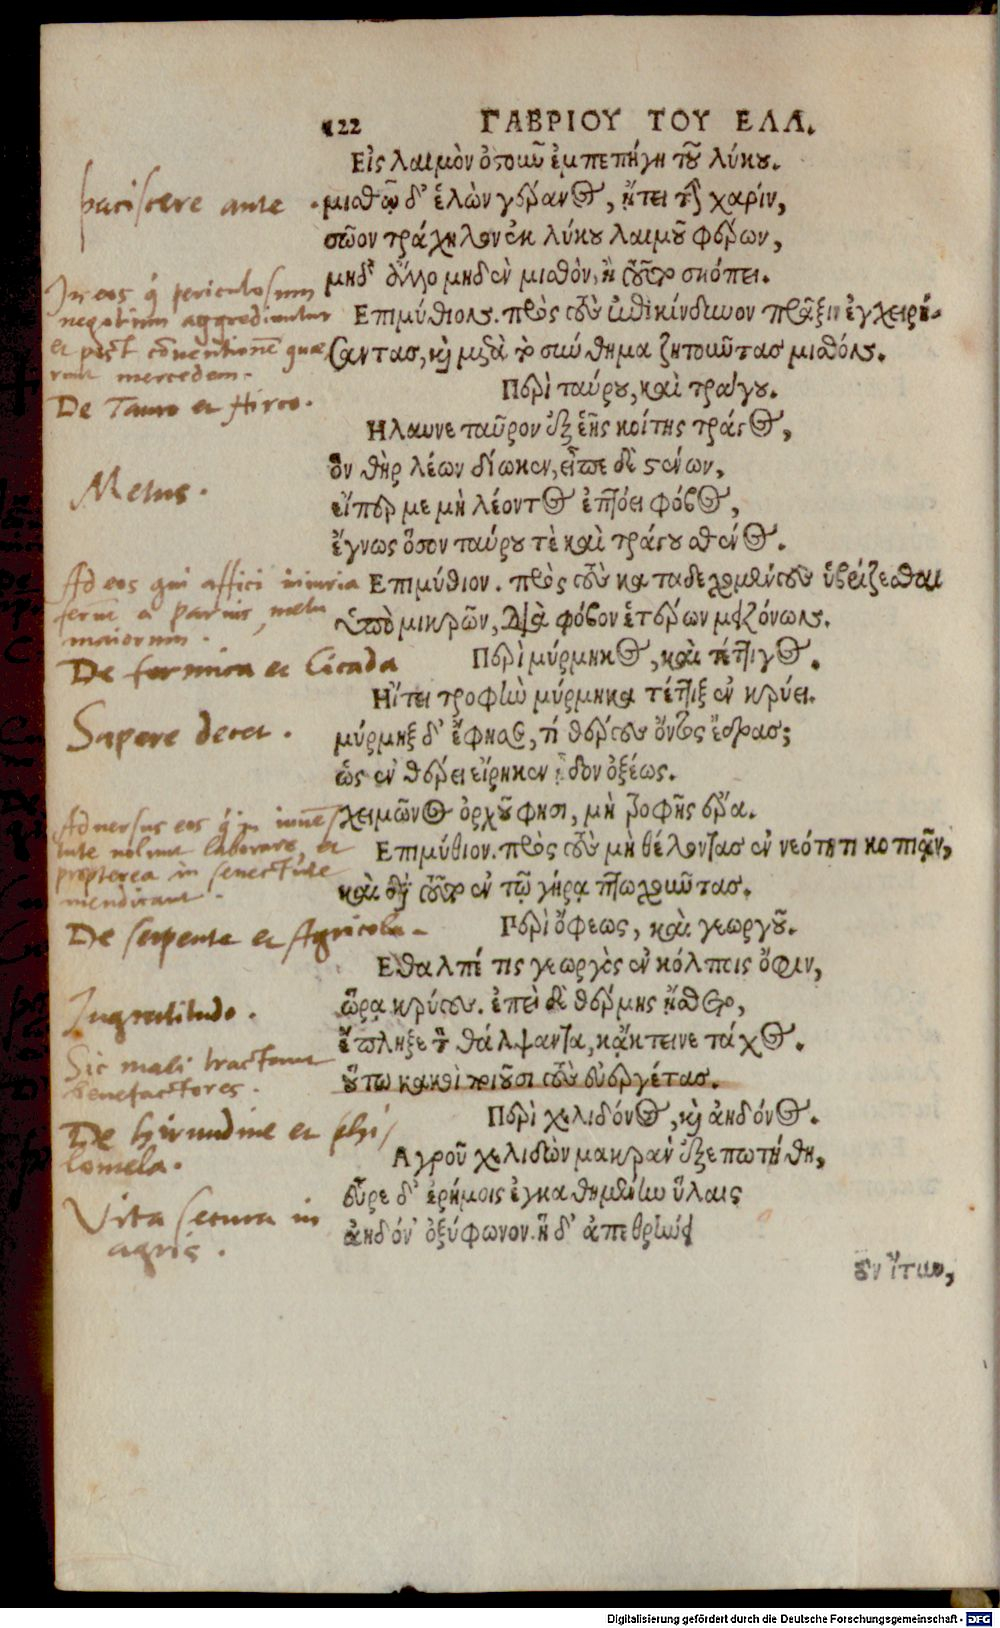 122 ΓΑΒΡΙΟΥ ΤΟΥ ΕΛΛ.
Εἰς λαιμὸν ὀστοῦν ἐμπεπήγη τοῦ λύκου.
paciscere ante .
μισθῷ δ' ἑλὼν γέρανος, ᾔτει τὴν χάριν,
σῶον τράχηλον ἐκ λύκου λαιμοῦ φέρων,
μηδ' ἄλλο μηδὲν μισθὸν, ἢ τοῦτο σκόπει.
In eos q̃ periculosum
negotium aggrediuntur
et post cõventionẽ quæ
runt mercedem.
Επιμύθιον. πρὸς τοὺς ἐπικίνδυνον πρᾶξιν ἐγχειρί-
σαντας, καὶ μετὰ τὸ σύνθημα ζητοῦντας μισθόν.
De Tauro et Hirco.
Περὶ ταύρου, καὶ τράγου.
Ηλαυνε ταῦρον ἐξ ἑῆς κοίτης τράγος,
ὃν θὴρ λέων δίωκεν, εἶπε δὲ στένων,
Metus.
εἴπερ με μὴ λέοντος ἐπτόει φόβος,
ἔγνως ὅσον ταύρου τὲ καὶ τράγου σθένος.
Ad eos qui affici iniuria
ferũt a paruis, metu
maiorum.
Επιμύθιον. πρὸς τοὺς καταδεχομένους ὑβρίζεσθαι
ὑπὸ μικρῶν, διὰ φόβον ἑτέρων μειζόνων.
De formica et Cicada
Περὶ μύρμηκος, καὶ τέττιγος.
Ηἴτει τροφὴν μύρμηκα τέττιξ ἐν κρύει.
Sapere decet.
μύρμηξ δ' ἔφησε, τί θέρους ὄντος ἔδρας;
ὡς ἐν θέρει εἴρηκεν ᾖδον ὀξέως.
χειμῶνος ὀρχοῦ φησι, μὴ τροφῆς ἔρα.
Adversus eos q̃ in iuuẽ
tute nolunt laborare, et
propterea in senectute
mendicant.
Επιμύθιον. πρὸς τοὺς μὴ θέλοντας ἐν νεότητι κοπιᾶν,
καὶ διὰ τοῦτο ἐν τῷ γήρᾳ πτωχοῦντας.
De serpente et Agricola.
Περὶ ὄφεως, καὶ γεωργοῦ.
Εθαλπέ τις γεωργὸς ἐν κόλποις ὄφιν,
Ingratitudo.
ὥρᾳ κρύους. ἐπεὶ δὲ θέρμης ᾔσθετο,
ἔπληξε τὸν θάλψαντα, κᾄκτεινε τάχος.
Sic mali tractant
benefactores.
οὕτω κακοὶ ποιοῦσι τοὺς εὐεργέτας.
De hirundine et phi
lomela.
Περὶ χελιδόνος, καὶ ἀηδόνος.
Αγροῦ χελιδὼν μακρὰν ἐξεπωτήθη,
Vita secura in
agris.
εὗρε δ' ἐρήμοις ἐγκαθημένην ὕλαις
ἀηδόν' ὀξύφωνον. ἣ δ' ἀπεθρήνει
τὸν ἴτυν,
Digitalisierung gefördert durch die Deutsche Forschungsgemeinschaft - DFG